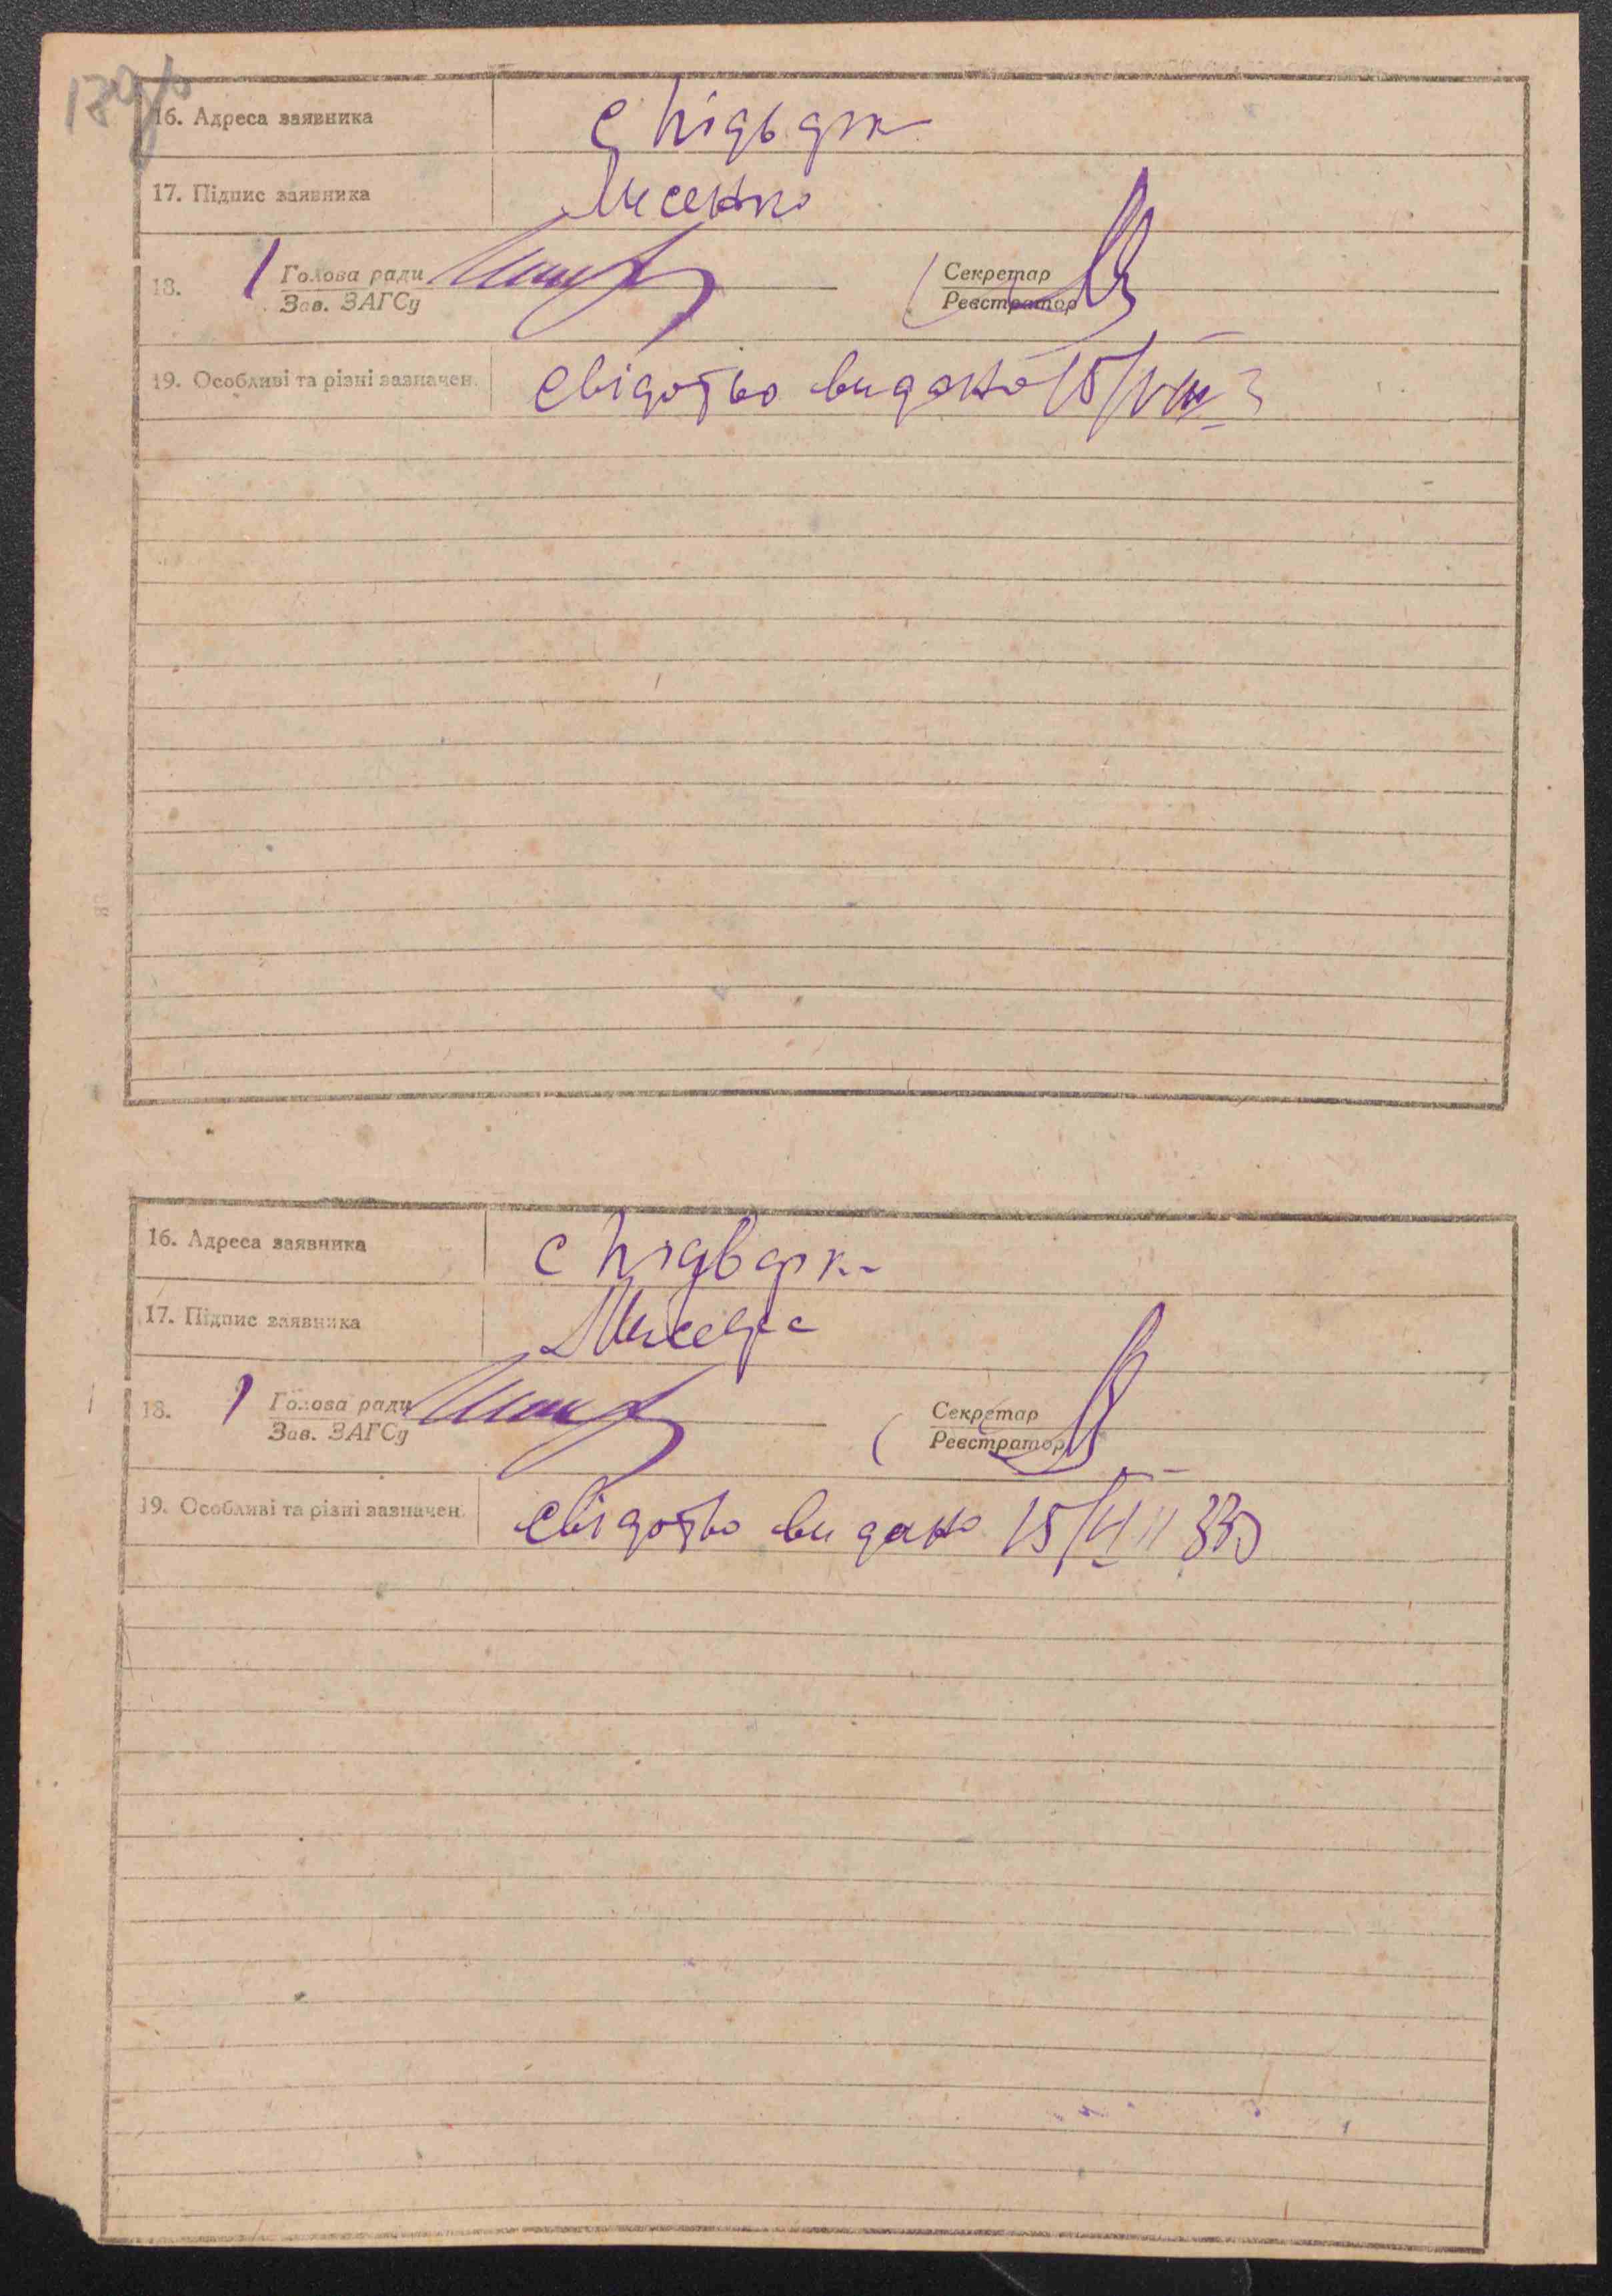 16. Адреса заявника с Підварк
17. Підпис заявника Лисенко
18. Голова ради Секретар
Зав. ЗАГСу Реєстратор
19. Особливі та різні зазначен. свідотво видано 15/VIII 3
16. Адреса заявника с Підварк
17. Підпис заявника
18. Голова ради Секретар
Зав. ЗАГСу Реєстратор
19. Особливі та різні зазначен. свідотво видано 15/VIII 33